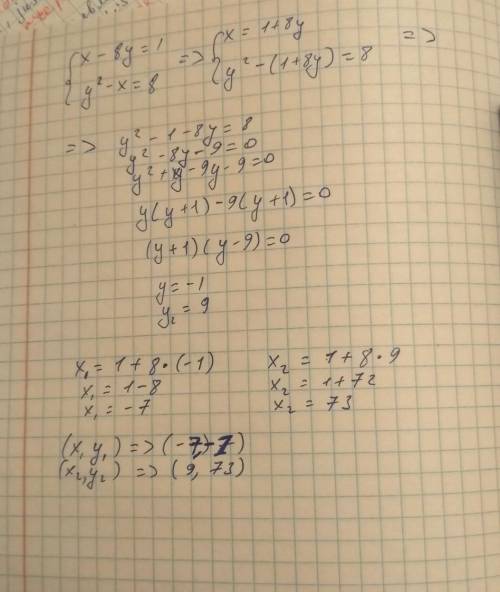 { x - 8y = 1 => { x = 1+8y =>
{ y² - x = 8 { y² - (1+8y) = 8
=> y² - 1 - 8y = 8
y² - 8y - 9 = 0
y² + y - 9y - 9 = 0
y(y+1) - 9(y+1) = 0
(y+1)(y-9) = 0
y = -1
y₂ = 9
x₁ = 1+8·(-1) x₂ = 1+8·9
x₁ = 1-8 x₂ = 1+72
x₁ = -7 x₂ = 73
(x₁ y₁) => (-7,-1)
(x₂,y₂) => (9, 73)